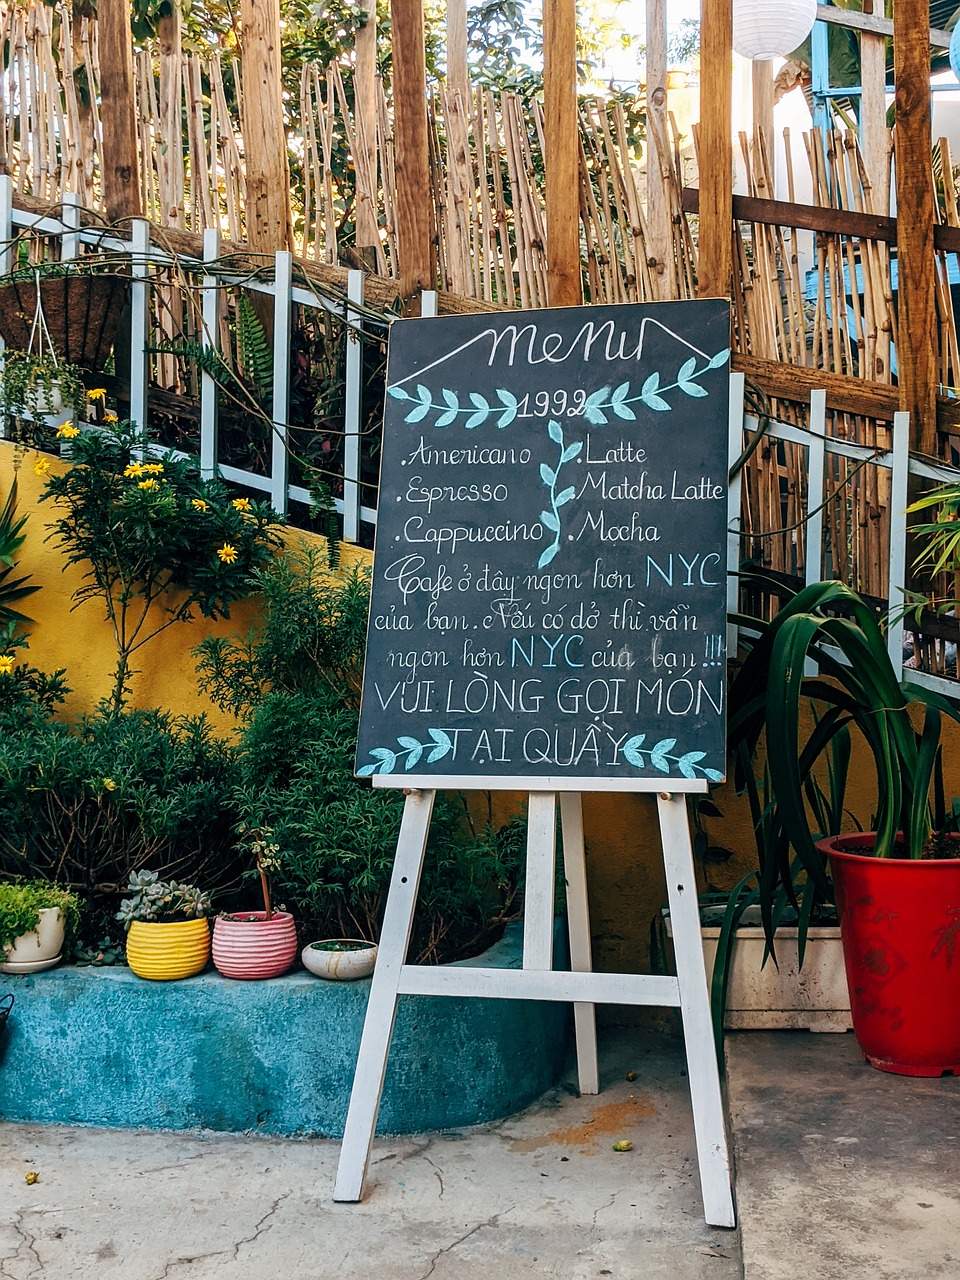 menu
1992
.Americano .Latte
.Espresso .Matcha Latte
.Cappuccino .Mocha
Cafe ở đây ngon hơn NYC
của bạn. Nếu có dở thì vẫn
ngon hơn NYC của bạn !!!
VUI LÒNG GỌI MÓN
TẠI QUẦY